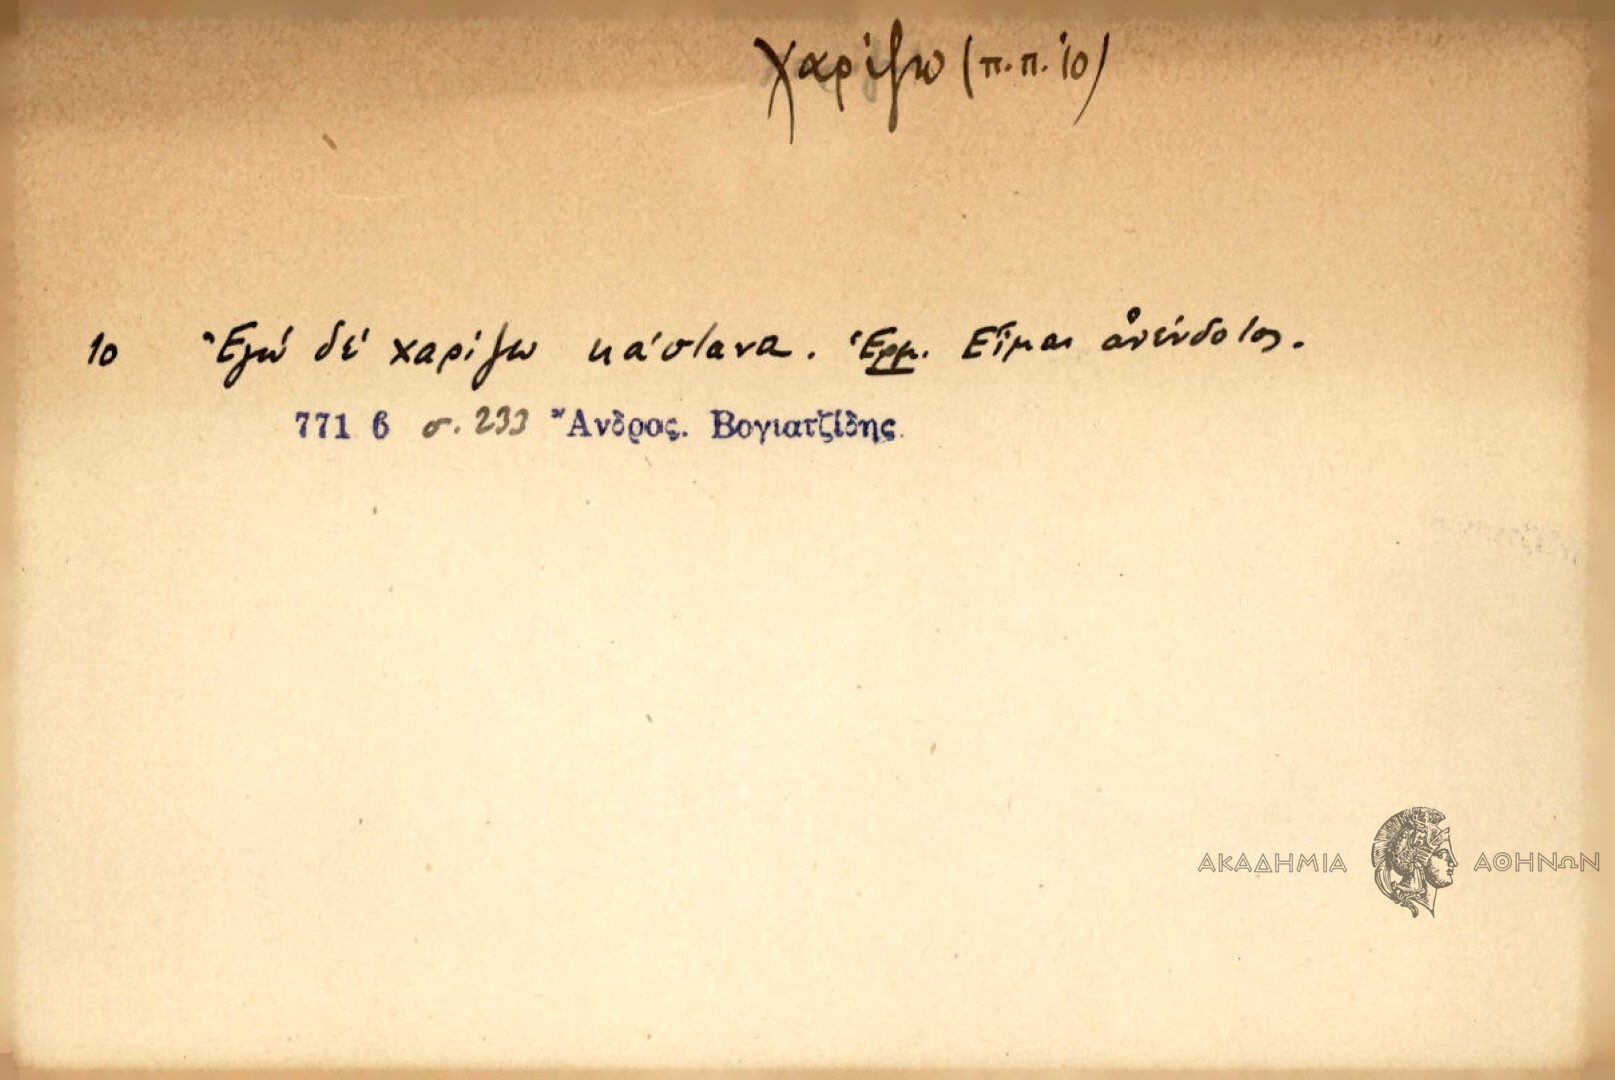 Χαρίζω (π.π. 10)
10 Ἐγώ δέ χαρίζω κάστανα. Ἑρμ. Εἶμαι ἀνένδοτος.
771 β σ. 233 Ἄνδρος. Βογιατζίδης.
ΑΚΑΔΗΜΙΑ ΑΘΗΝΩΝ